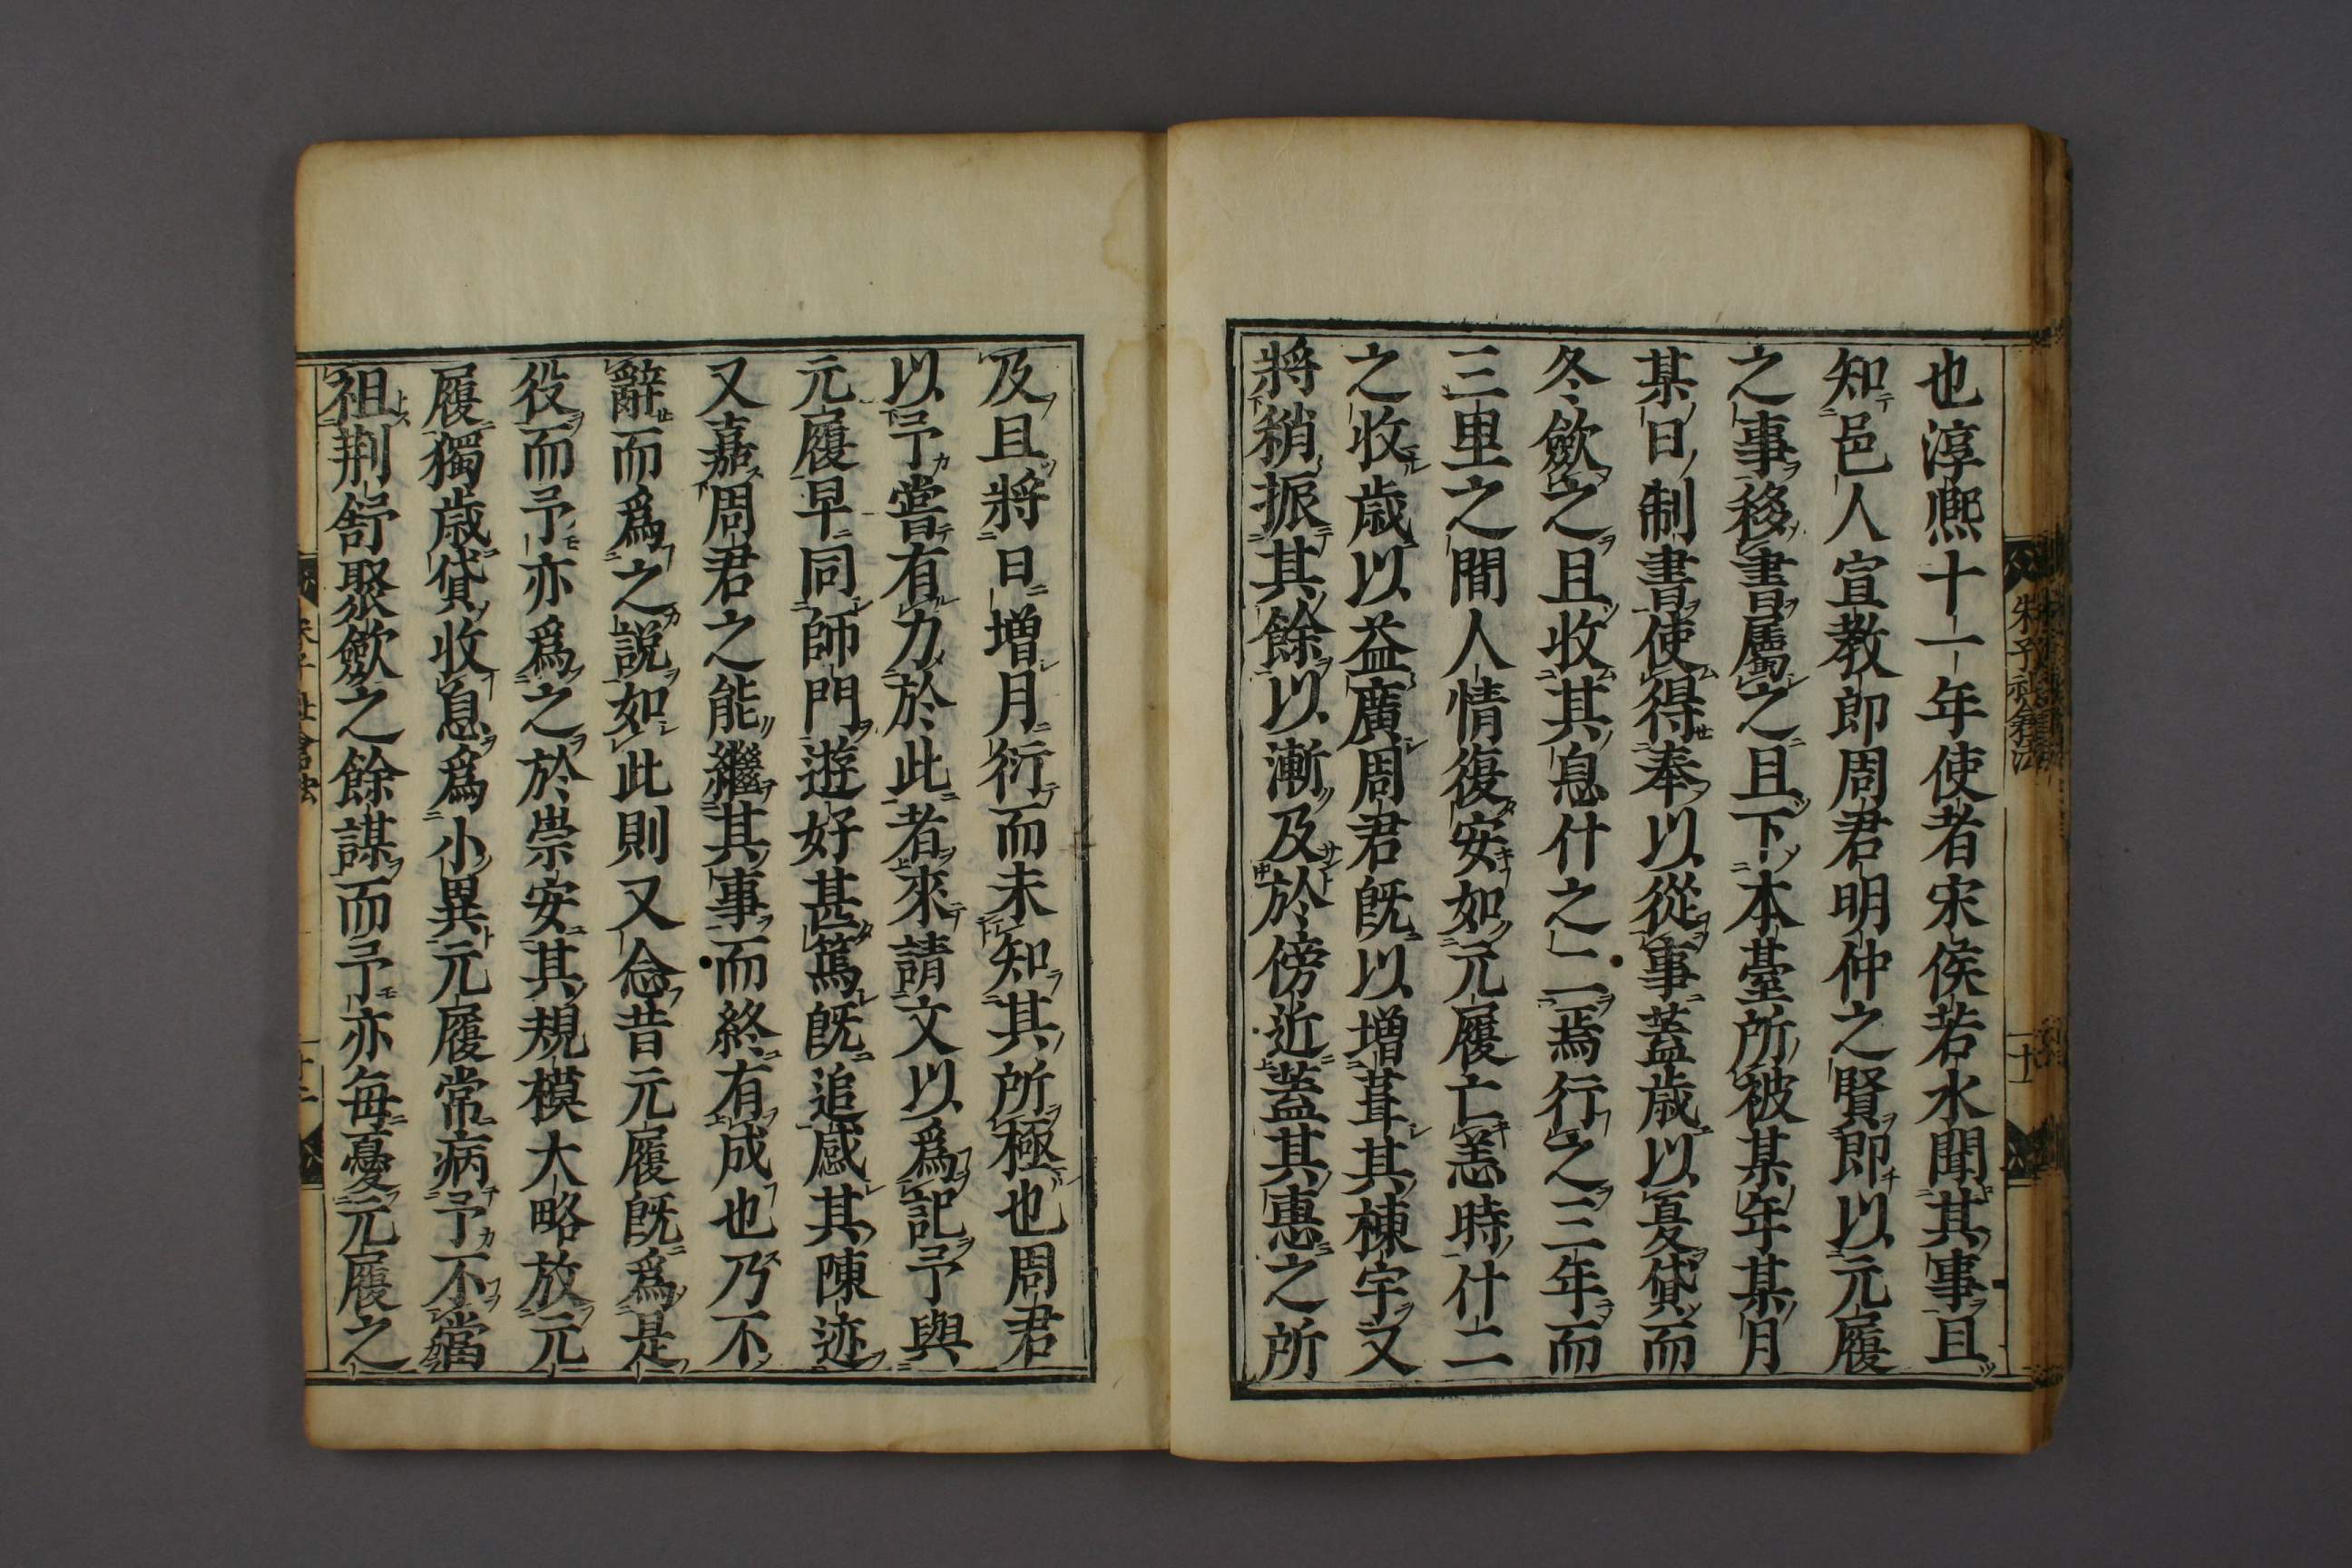 也淳熙十一年使者宋侯若水聞其事且
知邑人宣教郎周君明仲之賢即以元履
之事移書屬之且下本臺所被某年某月
某日制書使得奉以從事蓋歳以夏貸而
冬斂之且收其息什之二焉行之三年而
三里之間人情復安如元履亡恙時什二
之收歳以益廣周君既以増葺其棟宇又
將稍振其餘以漸及於傍近蓋其惠之所
及且將日増月衍而未知其所極也周君
以予嘗有力於此者來請文以爲記予與
元履早同師門遊好甚篤既追感其陳迹
又嘉周君之能繼其事而終有成也乃不
辭而爲之說如此則又念昔元履既爲是
役而予亦爲之於崇安其規模大略放元
履獨歳貸收息爲小異元履常病予不當
祖荆舒聚斂之餘謀而予亦每憂元履之
朱子社倉法
十一
朱子社倉法
十二